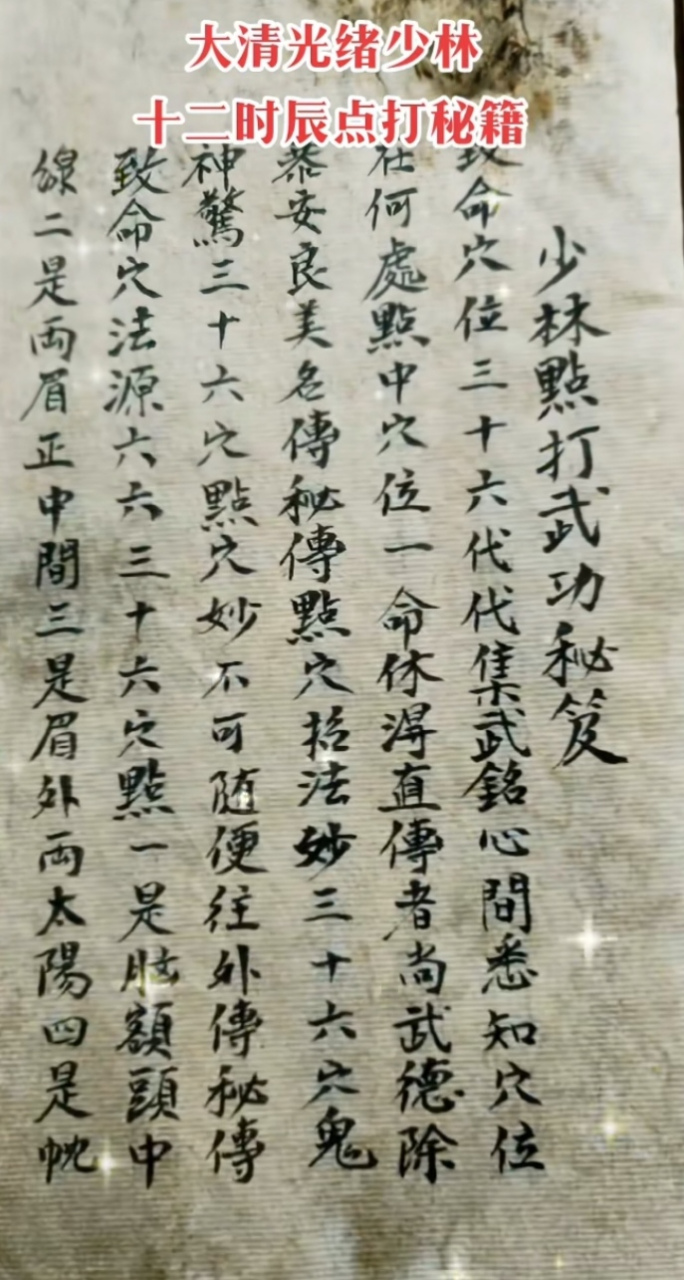 大清光绪少林
十二时辰点打秘籍
少林點打武功秘笈
致命穴位三十六代代集武銘心間悉知穴位
在何處點中穴位一命休得直傳者尚武德除
暴安良美名傳秘傳點穴招法妙三十六穴鬼
神驚三十六穴點穴妙不可随便往外傳秘傳
致命穴法源六六三十六穴點一是脑額頭中
線二是両眉正中間三是眉外両太陽四是